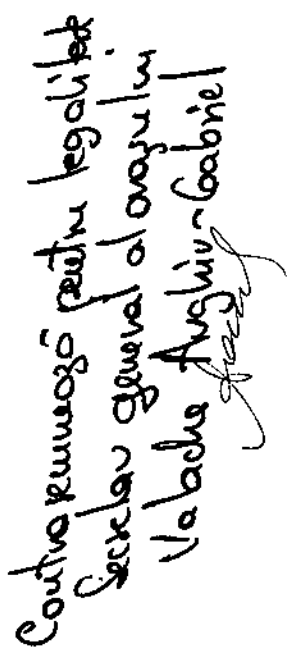 Contrasemnează pentru legalitate
Secretar general al orașului
Valache Anghin-Gabriel